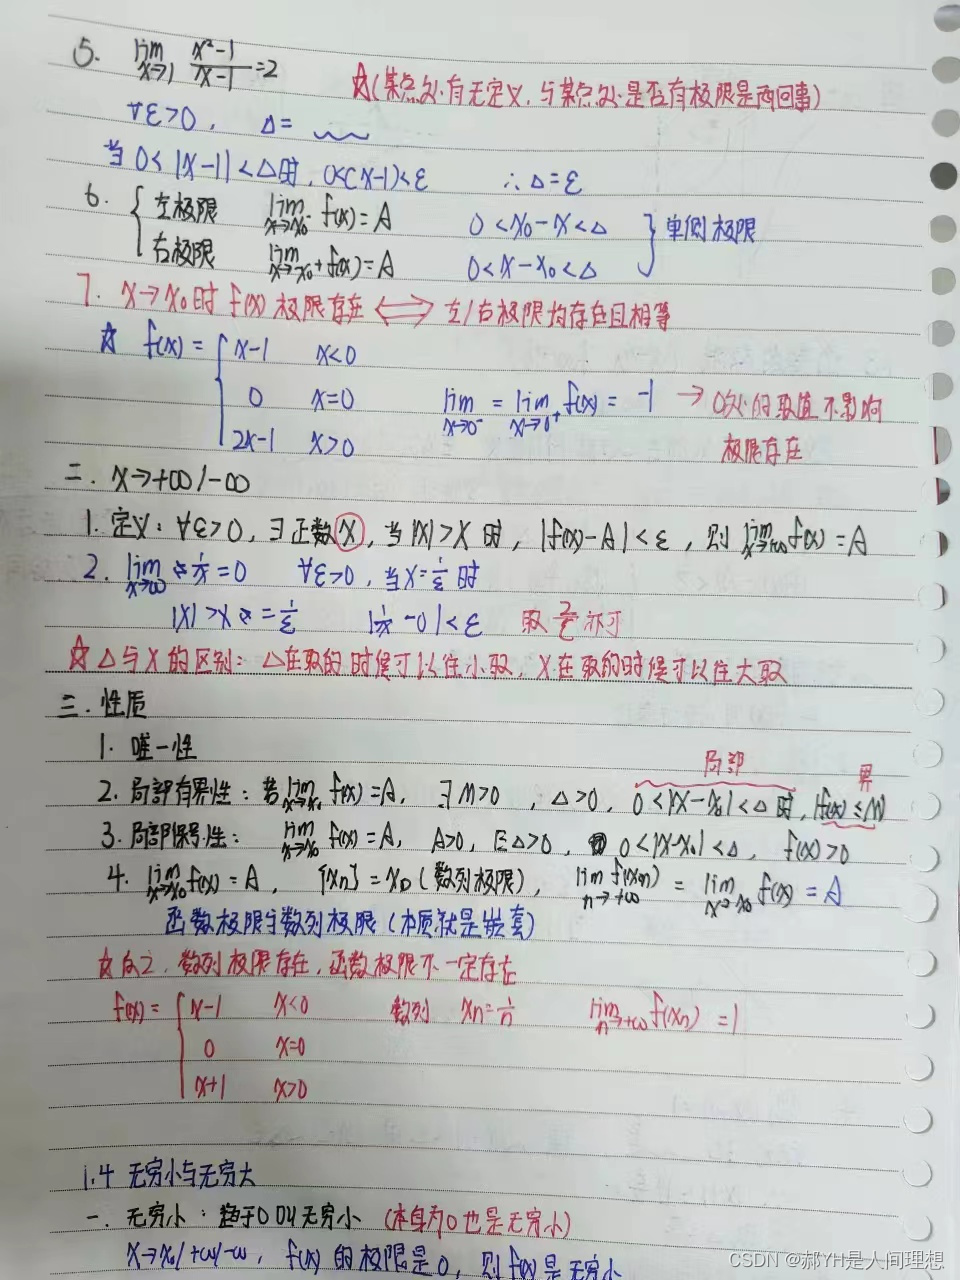 5. lim x→1 (x²-1)/(x-1) =2
☆(某点处有无定义,与某点处是否有极限是两回事)
∀ε>0, Δ=
当 0<|x-1|<Δ时, 0<(x-1)<ε ∴Δ=ε
6. { 左极限 lim x→x₀⁻ f(x)=A 0<x₀-x<Δ } 单侧极限
右极限 lim x→x₀+ f(x)=A 0<x-x₀<Δ
7. x→x₀时 f(x)极限存在 ⟺ 左/右极限均存在且相等
☆ f(x)= { x-1 x<0
0 x=0 lim x→0⁻ = lim x→0⁺ f(x) = -1 → 0处的取值不影响
2x-1 x>0 极限存在
二. x→+∞/-∞
1. 定义: ∀ε>0, ∃正数X, 当|x|>X时, |f(x)-A|<ε, 则 lim x→∞ f(x)=A
2. lim x→∞ 1/x=0 ∀ε>0, 当X=1/ε时
|x|>X = 1/ε |1/x -0|<ε 取2/ε亦可
☆ Δ与X的区别: Δ在取的时候可以往小取, X在取的时候可以往大取
三. 性质
1. 唯一性
局部 界
2. 局部有界性: 若 lim x→x₀ f(x)=A, ∃M>0, Δ>0, 0<|x-x₀|<Δ时, |f(x)|≤M
3. 局部保号性: lim x→x₀ f(x)=A, A>0, ∃Δ>0, 0<|x-x₀|<Δ, f(x)>0
4. lim x→x₀ f(x)=A, {xn}=x₀(数列极限), lim n→+∞ f(xn) = lim x→x₀ f(x) = A
函数极限与数列极限(本质就是嵌套)
☆反之, 数列极限存在, 函数极限不一定存在
f(x)= { x-1 x<0 数列 xn=1/n lim n→+∞ f(xn) =1
0 x=0
x+1 x>0
1.4 无穷小与无穷大
一. 无穷小: 趋于0叫无穷小 (本身为0也是无穷小)
x→x₀/+∞/-∞, f(x)的极限是0, 则f(x)是无穷小
CSDN @郝YH是人间理想